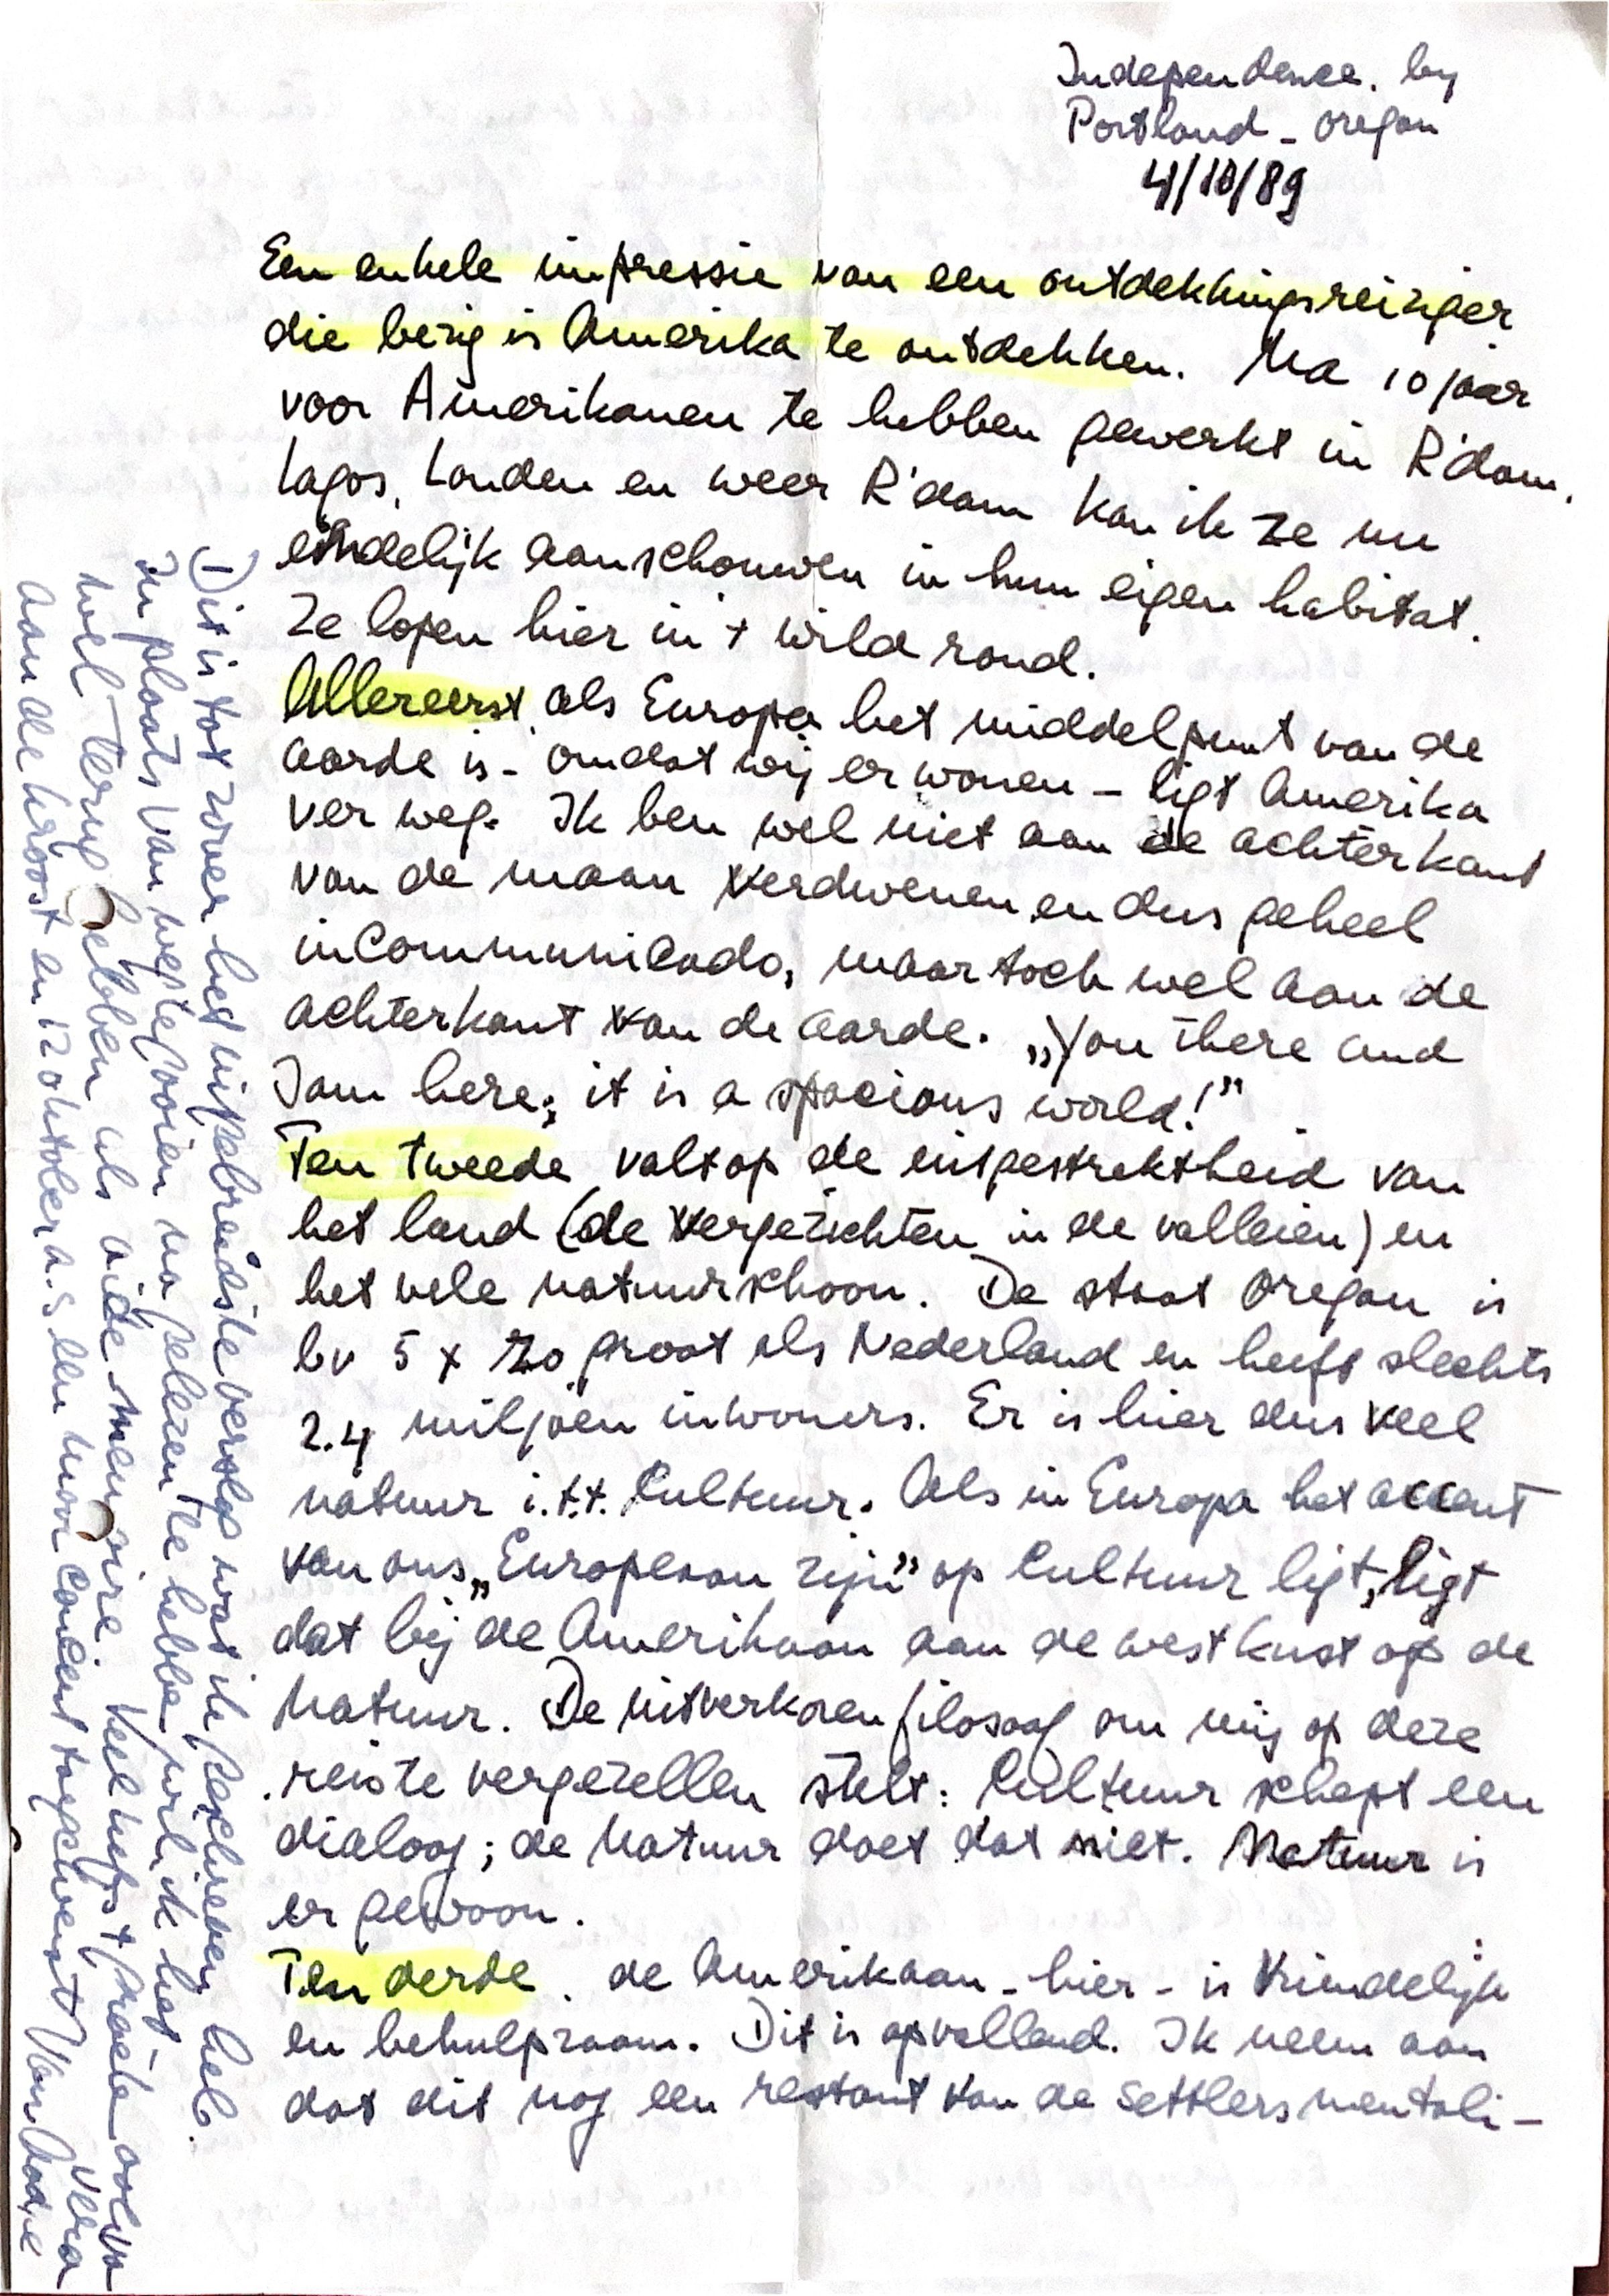 Independence. by
Portland - Oregon
4/10/89
Een enkele impressie van een ontdekkingsreiziger
die bezig is Amerika te ontdekken. Na 10 jaar
voor Amerikanen te hebben gewerkt in R'dam,
Lagos, Londen en weer R'dam kan ik ze nu
eindelijk aanschouwen in hun eigen habitat.
Ze lopen hier in 't wild rond.
Allereerst, als Europa het middelpunt van de
aarde is - omdat wij er wonen - ligt Amerika
ver weg. Ik ben wel niet aan de achterkant
van de maan verdwenen en dus geheel
incommunicado, maar toch wel aan de
achterkant van de aarde. „You there and
I am here; it is a spacious world!”
Ten tweede valt op de uitgestrektheid van
het land (de vergezichten in de valleien) en
het vele natuurschoon. De staat Oregon is
bv 5 x zo groot als Nederland en heeft slechts
2.4 miljoen inwoners. Er is hier dus veel
natuur i.t.t. Cultuur. Als in Europa het accent
van ons „Europeaan zijn” op Cultuur ligt, ligt
dat bij de Amerikaan aan de westkust op de
Natuur. De uitverkoren filosoof om mij op deze
reis te vergezellen stelt: Cultuur schept een
dialoog; de Natuur doet dat niet. Natuur is
er gewoon.
Ten derde. de Amerikaan - hier - is vriendelijk
en behulpzaam. Dit is opvallend. Ik neem aan
dat dit nog een restant van de Settlers mentali-
1) Dit is tot zover het uitgebreidste verslag wat ik geschreven heb.
In plaats van weggegooien na gelezen te hebben, wil ik het
wel terug hebben als aide mémoire. Veel liefs + groeten ook van
aan de kroost en 12 oktober a.s. een mooi concert toegewenst Van Vera